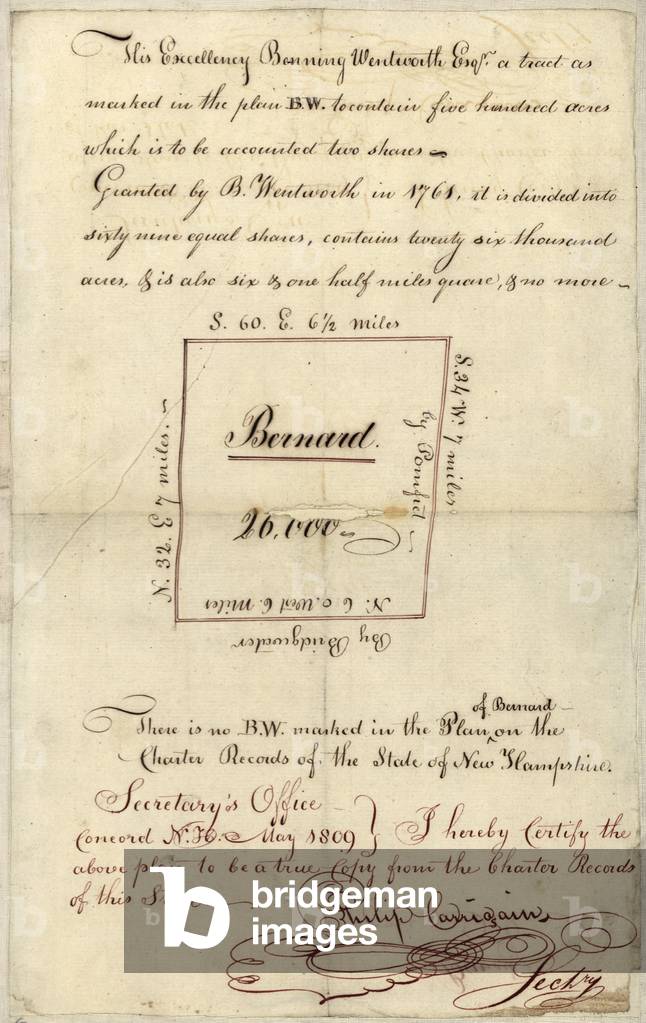 His Excellency Benning Wentworth Esqr. a tract as
marked in the plan B.W. to contain five hundred acres
which is to be accounted two shares
Granted by B. Wentworth in 1761, it is divided into
sixty nine equal shares, contains twenty six thousand
acres, & is also six & one half miles quare, & no more
S. 60. E. 6 1/2 miles
S. 34 W. 7 miles
by Pomfret
Bernard.
26,000
N. 32. E 7 miles.
N. 60. West 6. Miles
By Bridgwater
of Bernard
There is no B.W. marked in the Plan ^ on the
Charter Records of, the State of New Hampshire.
Secretary's Office
Concord N.H. May 1809 } I hereby Certify the
above plan to be a true Copy from the Charter Records
of this
Philip Carrigain
Sectry
bridgeman
images